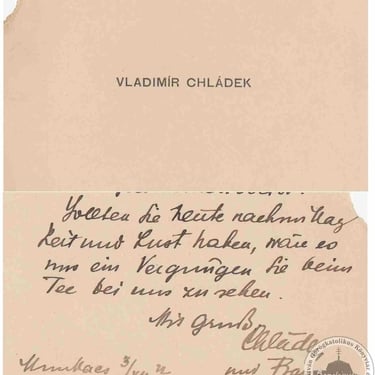 VLADIMÍR CHLÁDEK
Sollten Sie heute nachmittag
Zeit und Lust haben, wäre es
uns ein Vergnügen Sie beim
Tee bei uns zu sehen.
Mit Gruß
Chládek
Munkacs 3/XII und